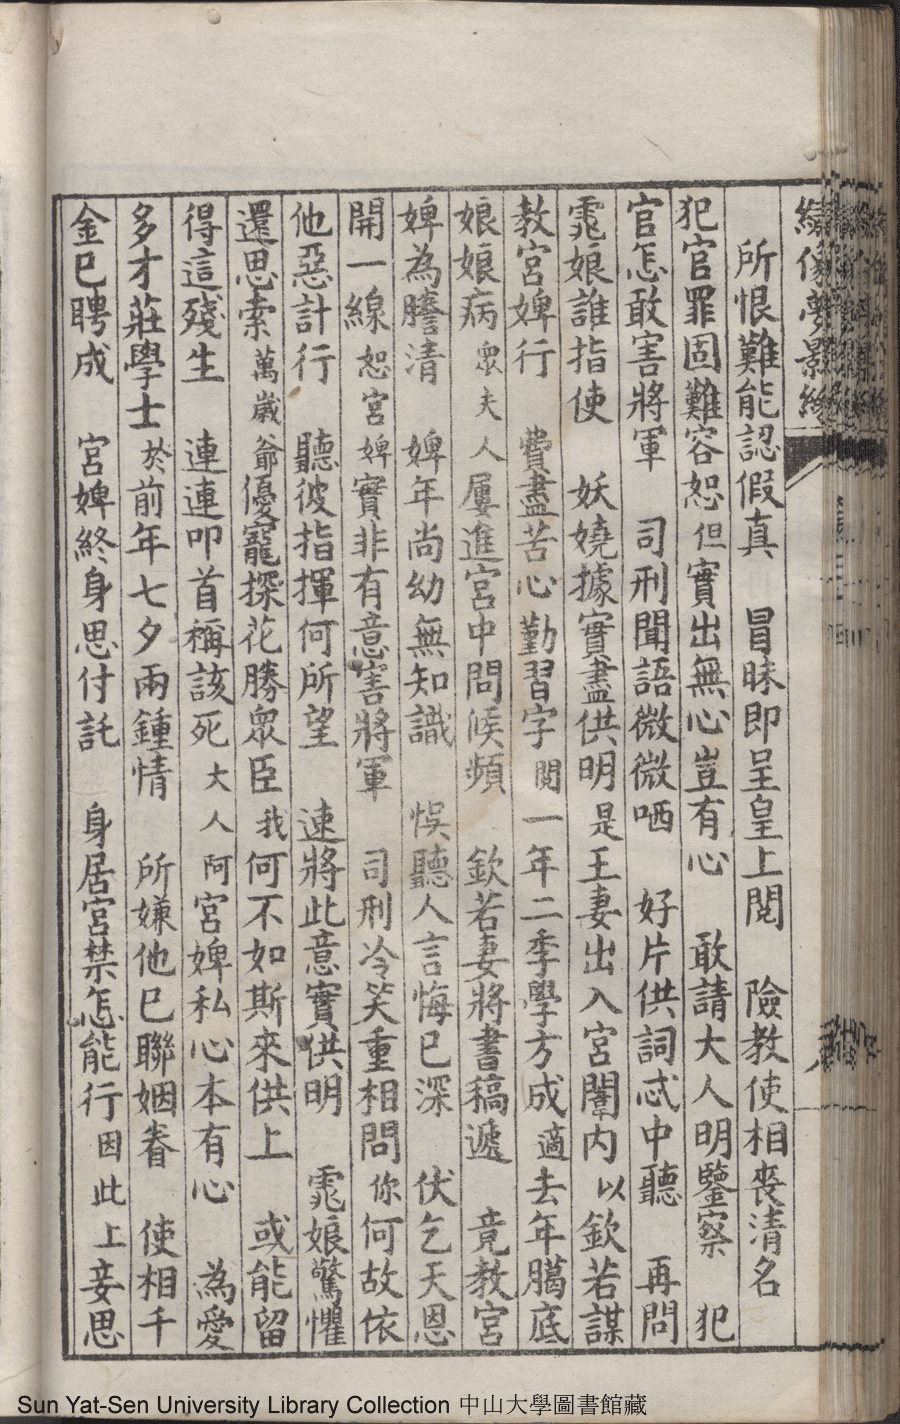 繡像夢影緣
所恨難能認假真　冒昧即呈皇上閱　險教使相喪清名
犯官罪固難容恕但實出無心豈有心　敢請大人明鑒察　犯
官怎敢害將軍　司刑聞語微微哂　好片供詞忒中聽　再問
霓娘誰指使　妖嬈據實盡供明是王妻出入宮闈內以欽若謀
教宮婢行　費盡苦心勤習字閱一年二季學方成適去年臈底
娘娘病眾夫人屢進宮中問候頻　欽若妻將書稿遞　竟教宮
婢為謄清　婢年尚幼無知識　悞聽人言悔已深　伏乞天恩
開一線恕宮婢實非有意害將軍　司刑冷笑重相問你何故依
他惡計行　聽彼指揮何所望　速將此意實供明　霓娘驚懼
還思索萬歲爺優寵探花勝眾臣我何不如斯來供上　或能留
得這殘生　連連叩首稱該死大人阿宮婢私心本有心　為愛
多才莊學士於前年七夕兩鍾情　所嫌他已聯姻眷　使相千
金已聘成　宮婢終身思付託　身居宮禁怎能行因此上妾思
Sun Yat-Sen University Library Collection 中山大學圖書館藏